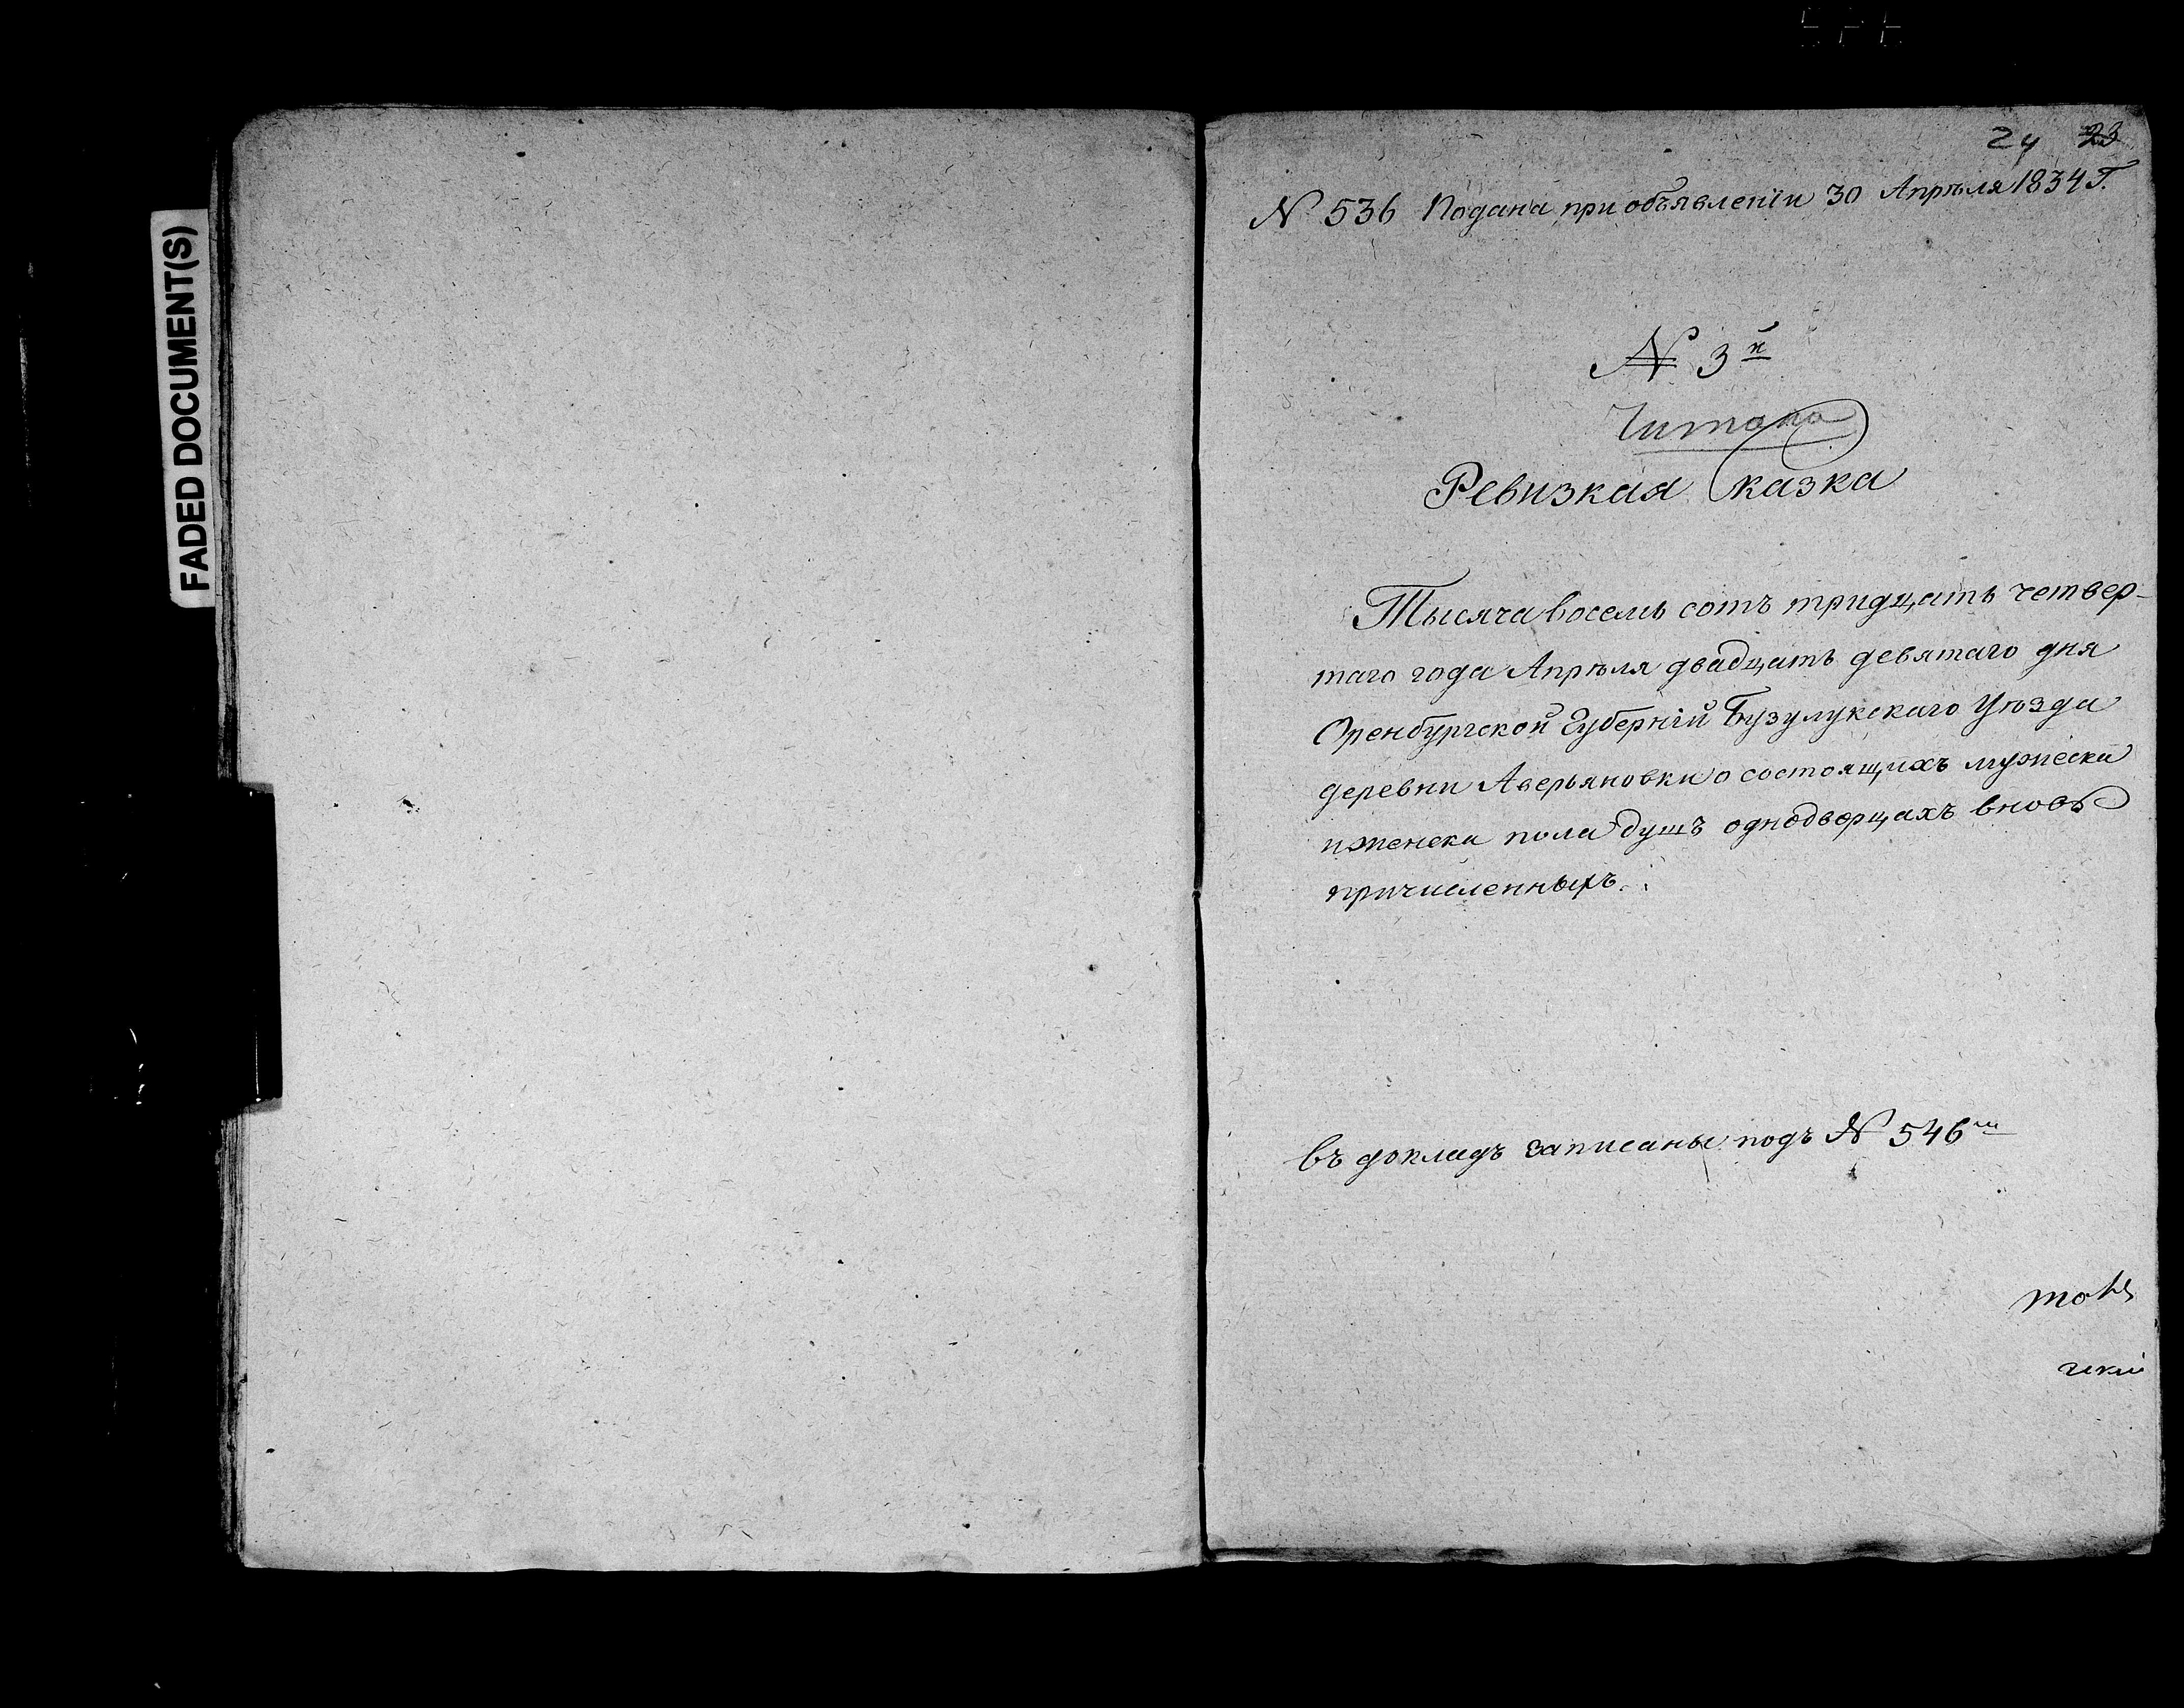 FADED DOCUMENT(S)
24 23
№ 536 Подана при объявленіи 30 Апрѣля 1834 Г.
№ 3й
Читано
Ревизкая Сказка
Тысяча восемь сотъ тридцать четвер-
таго года Апрѣля двадцать девятаго дня
Оренбургской Губерніи Бузулукскаго Уѣзда
деревни Аверьяновки о состоящихъ мужеска
и женска пола душъ однодворцахъ вновь
причисленныхъ.
въ докладъ записаны подъ № 546м